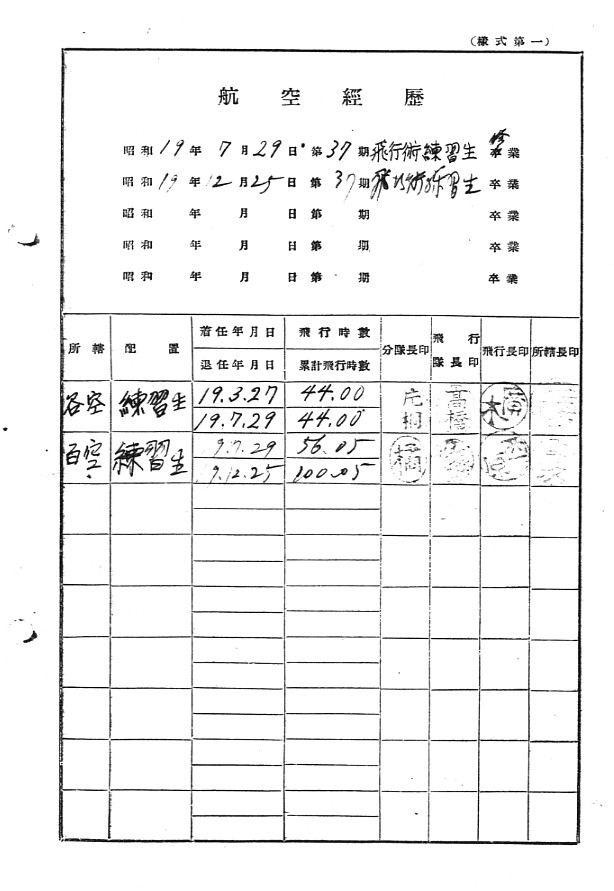 （樣式第一）
航空經歷
昭和19年7月29日第37期飛行術練習生修卒業
昭和19年12月25日第37期飛行術練習生卒業
昭和 年 月 日第 期 卒業
昭和 年 月 日第 期 卒業
昭和 年 月 日第 期 卒業
所轄 配置 着任年月日 飛行時數 分隊長印 飛行隊長印 飛行長印 所轄長印
退任年月日 累計飛行時數
谷空 練習生 19.3.27 44.00 高橋
19.7.29 44.00
百空 練習生 9.7.29 56.05
19.12.25 100.05